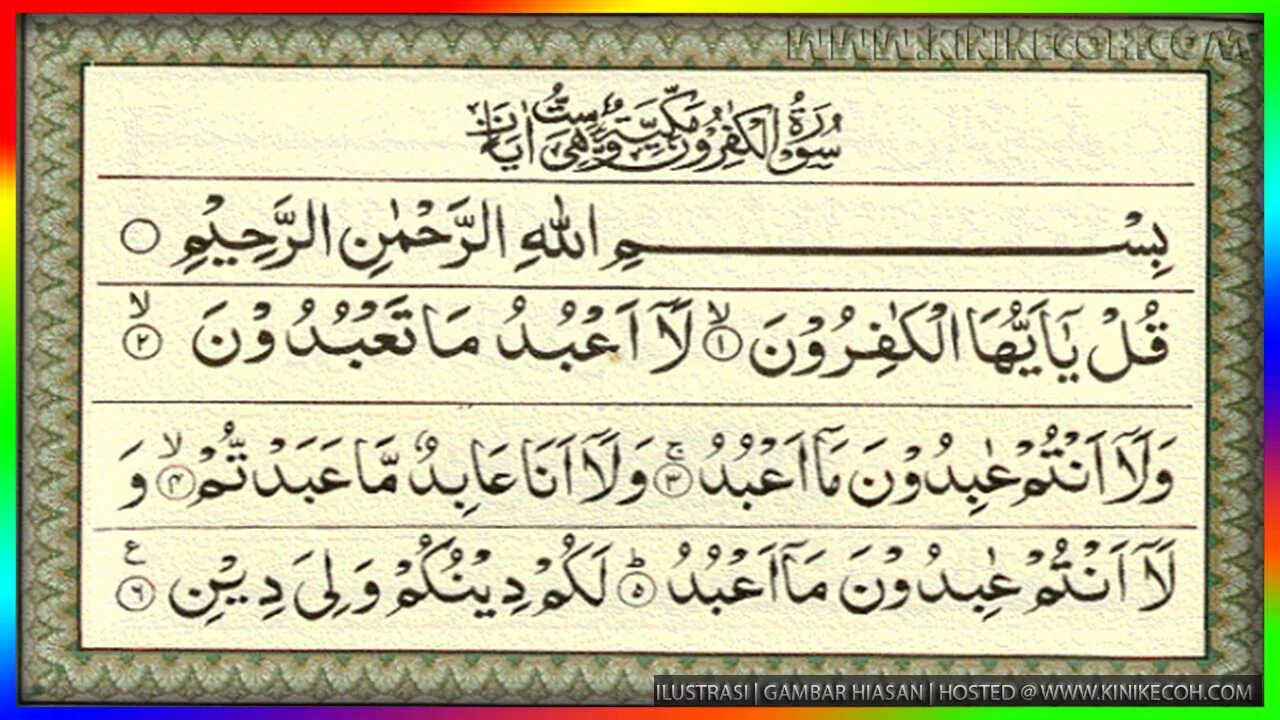 WWW.KINIKECOH.COM
سُوْرَةُ الْكٰفِرُوْنَ مَكِّيَّةٌ وَّهِىَ سِتُّ اٰيَاتٍ
بِسْمِ اللهِ الرَّحْمٰنِ الرَّحِيْمِ ۝
قُلْ يٰٓاَيُّهَا الْكٰفِرُوْنَ ۙ‏﴿۱﴾ لَآ اَعْبُدُ مَا تَعْبُدُوْنَ ۙ‏﴿۲﴾
وَلَآ اَنْتُمْ عٰبِدُوْنَ مَآ اَعْبُدُ ۚ‏﴿۳﴾ وَلَآ اَنَا عَابِدٌ مَّا عَبَدْتُّمْ ۙ‏﴿۴﴾ وَ
لَآ اَنْتُمْ عٰبِدُوْنَ مَآ اَعْبُدُ ؕ‏﴿۵﴾ لَكُمْ دِيْنُكُمْ وَلِىَ دِيْنِ ﴿۶﴾ ع
ILUSTRASI | GAMBAR HIASAN | HOSTED @ WWW.KINIKECOH.COM